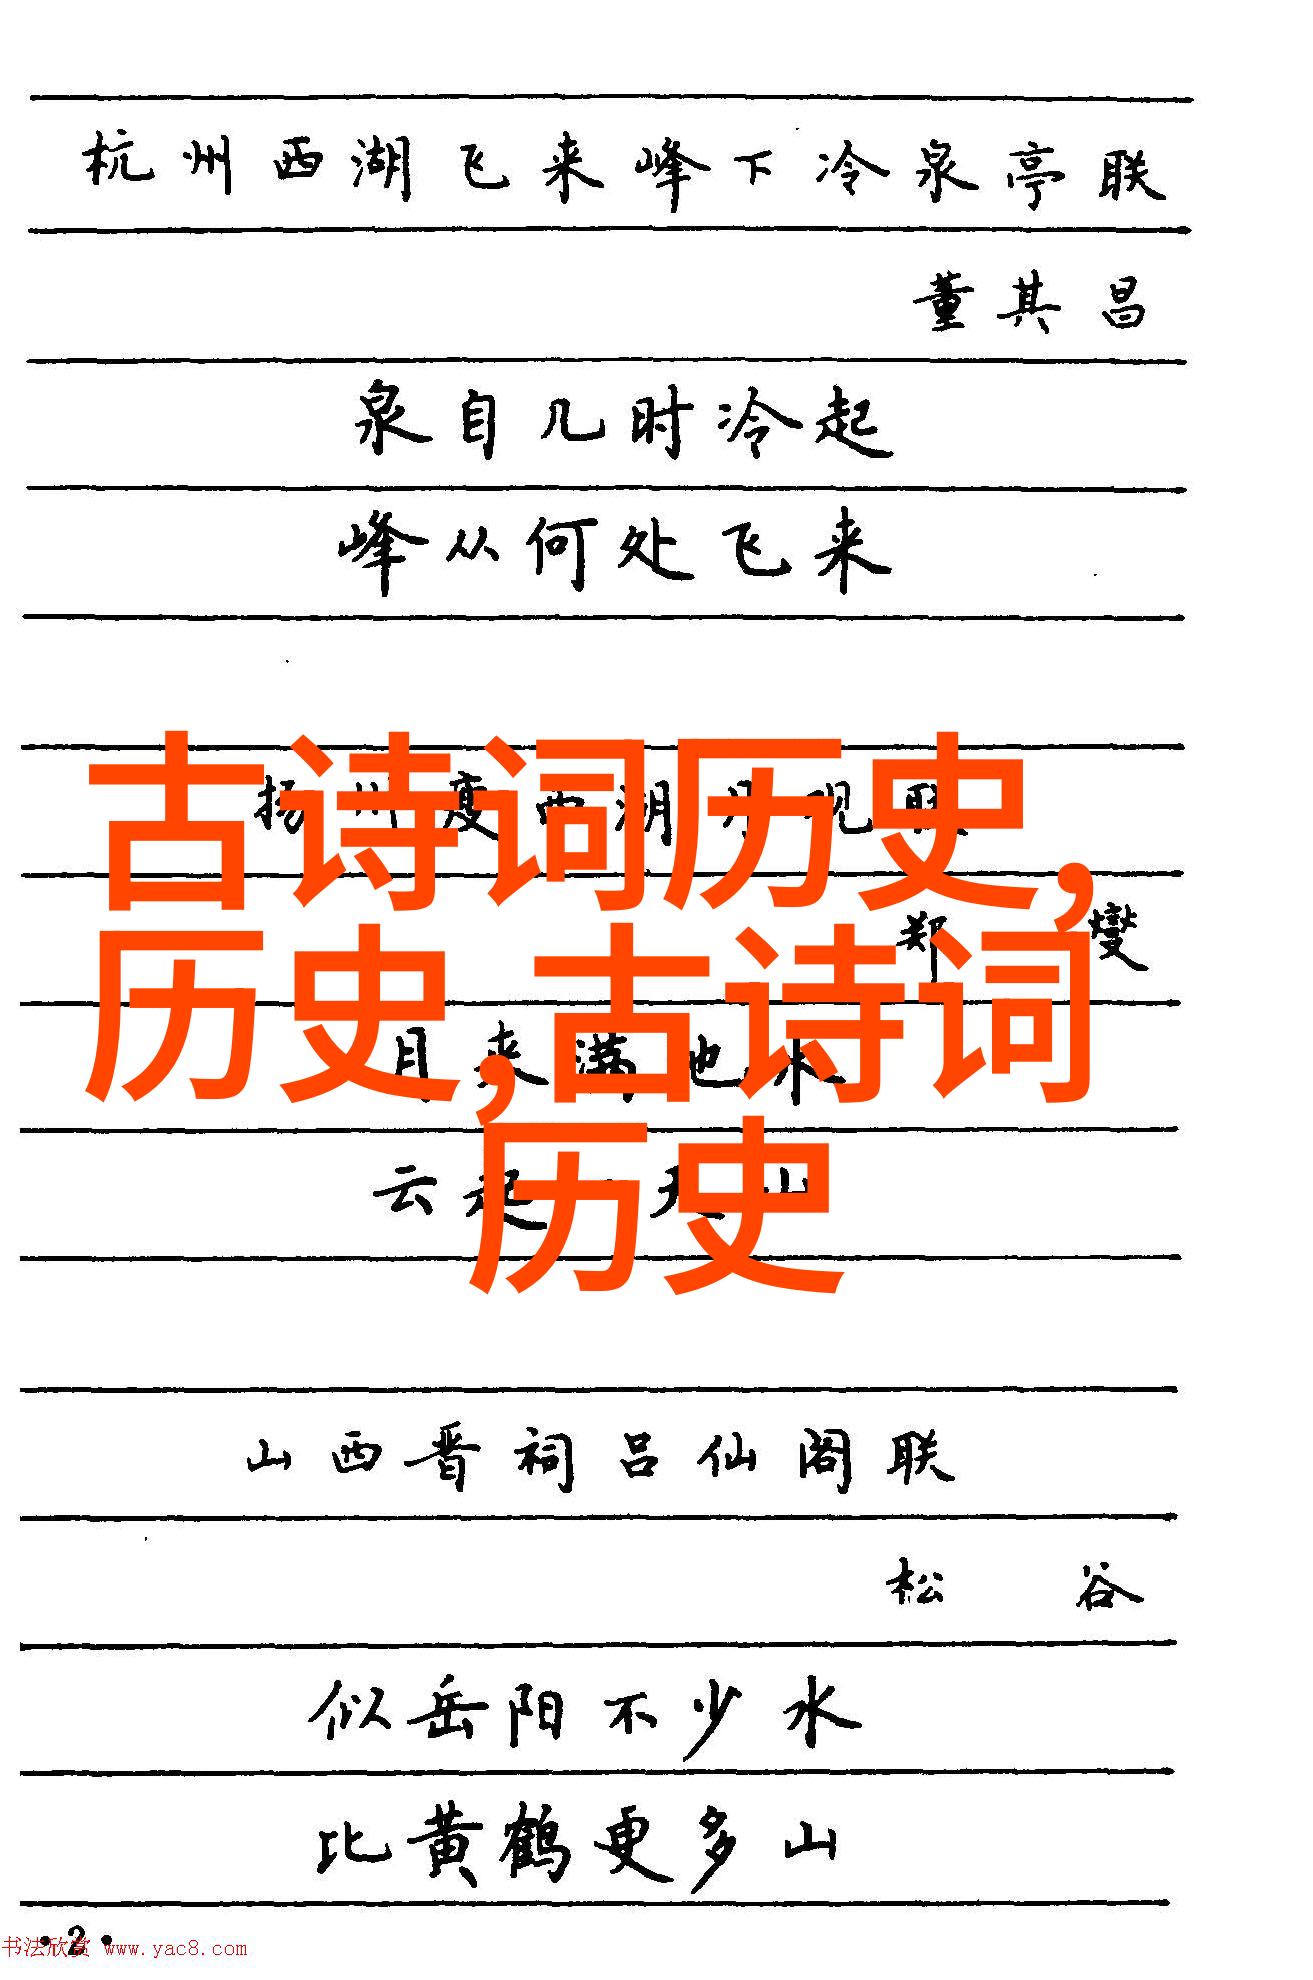 杭州西湖飞来峰下冷泉亭联
董其昌
泉自几时冷起
峰从何处飞来
古诗词历史,
扬州瘦西湖月观联
郑燮
历史,古诗词
月来满地水
云起一天山
历史
山西晋祠吕仙阁联
松谷
似岳阳不少水
比黄鹤更多山
·2·
书法欣赏 www.yac8.com